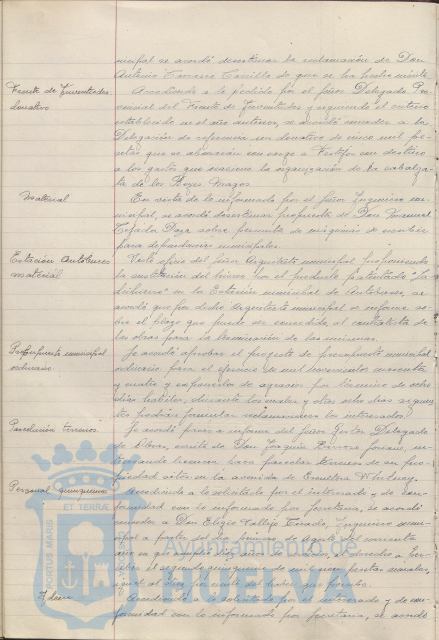 nicipal se acordó desestimar la reclamación de Don
Antonio Carrillo de que se ha hecho mérito.
Frente de Juventudes donativo
Accediendo a lo pedido por el señor Delegado Pro-
vincial del Frente de Juventudes y siguiendo el criterio
establecido en el año anterior, se acordó conceder a la
Delegación de referencia un donativo de cinco mil pe-
setas que se abonarán con cargo a Festejos con destino
a los gastos que ocasione la organización de la cabalga-
ta de los Reyes Magos.
Material
En vista de lo informado por el señor Ingeniero mu-
nicipal, se acordó desestimar propuesta de Don Manuel
Tejada Daza sobre permuta de máquinas de escribir
para dependencias municipales.
Estación Autobuses material
Visto oficio del señor Arquitecto municipal proponiendo
la sustitución del hierro con el producto patentado
en la Estación municipal de Autobuses, se
acordó que por dicho Arquitecto municipal se informe so-
bre el plazo que puede ser concedido al contratista de
las obras para la terminación de las mismas.
Presupuesto municipal ordinario
Se acordó aprobar el proyecto de presupuesto municipal
ordinario para el ejercicio de mil novecientos cincuenta
y cuatro y exponerlo de agravios por término de ocho
días hábiles, durante los cuales y otros ocho días siguien-
tes podrán formular reclamaciones los interesados.
Parcelación terrenos
Se acordó pase a informe del señor Gestor Delegado
de Obras, escrito de Don Joaquín so-
licitando licencia para parcelar terrenos de su pro-
piedad sitos en la avenida de Escultora Whitney.
Personal quinquenios
Accediendo a lo solicitado por el interesado y de con-
formidad con lo informado por Secretaría, se acordó
conceder a Don Eligio Vallejo Ingeniero muni-
cipal a partir del día primero de Agosto del corriente
año en que derecho a per-
cibir el segundo quinquenio de mil pesetas anuales,
igual al diez por ciento del haber que percibe.
Idem
Accediendo a lo solicitado por el interesado y de con-
formidad con lo informado por Secretaría, se acordó
PORTUS MARIS
ET TERRAE
Ayuntamiento de
HUELVA